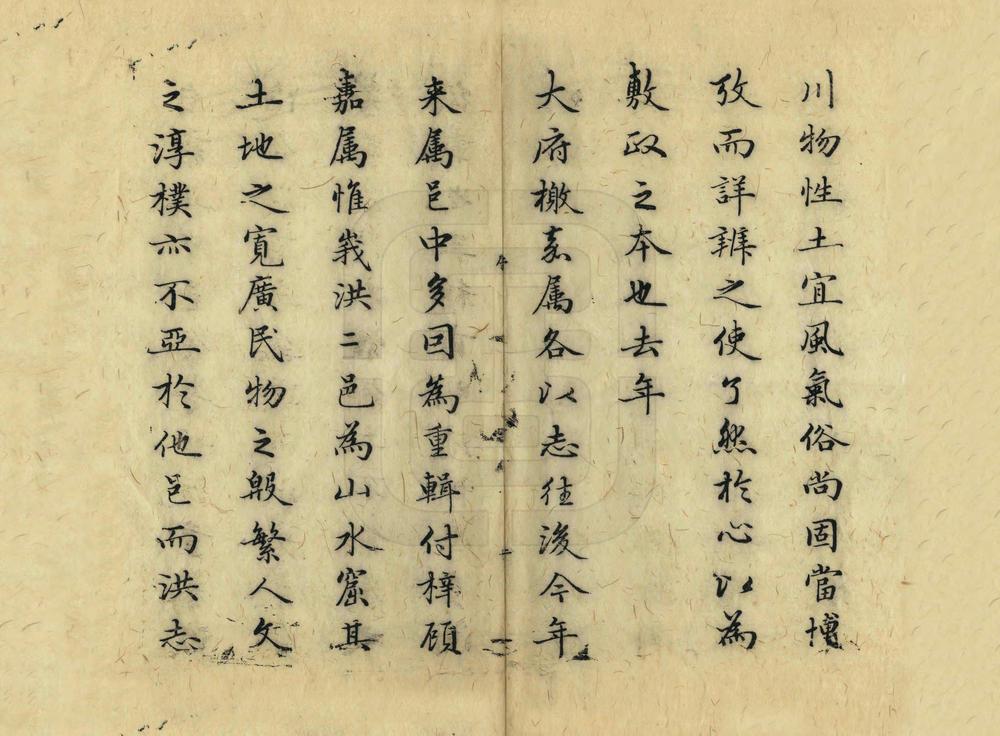 川物性土宜風氣俗尚固當博
攷而詳辨之使了然於心以為
敷政之本也去年
大府檄嘉属各以志往後今年
来属邑中多回為重輯付梓顧
嘉属惟峩洪二邑為山水窟其
土地之寬廣民物之殷繁人文
之淳樸亦不亞於他邑而洪志